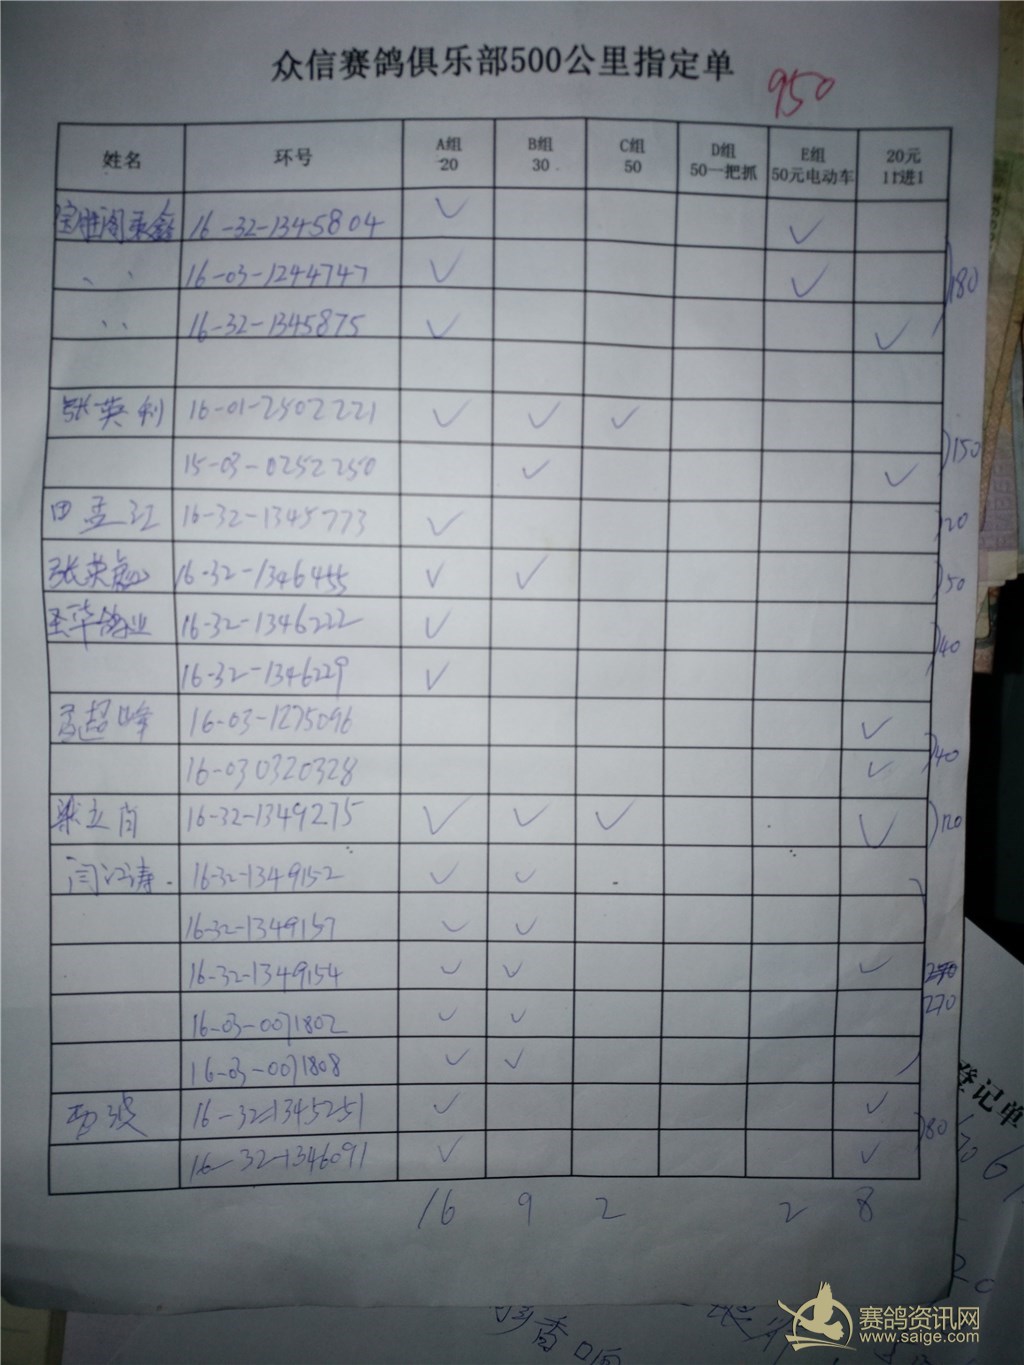 众信赛鸽俱乐部500公里指定单
950
姓名 环号 A组 20 B组 30 C组 50 D组 50一把抓 E组 50元电动车 20元 11进1
宝雁阁 鑫 16-32-1345804 ✓ ✓
、、 16-03-1244747 ✓ ✓ 180
、、 16-32-1345875 ✓ ✓
张英利 16-01-2502221 ✓ ✓ ✓
15-03-0252250 ✓ ✓ 150
田孟江 16-32-1345773 ✓ 20
张英 16-32-1346455 ✓ ✓ 50
圣华鸽业 16-32-1346222 ✓
16-32-1346229 ✓ 40
孟超峰 16-03-1275096 ✓
16-030320328 ✓ 40
梁立肖 16-32-1349275 ✓ ✓ ✓ ✓ 120
闫江涛 16-32-1349152 ✓ ✓
16-32-1349157 ✓ ✓
16-32-1349154 ✓ ✓ ✓
16-03-0071802 ✓ ✓ 270
16-03-0071808 ✓ ✓
波 16-32-1345251 ✓ ✓
16-32-1346091 ✓ ✓ 80
16 9 2 2 8
登记单
赛鸽资讯网
www.saige.com